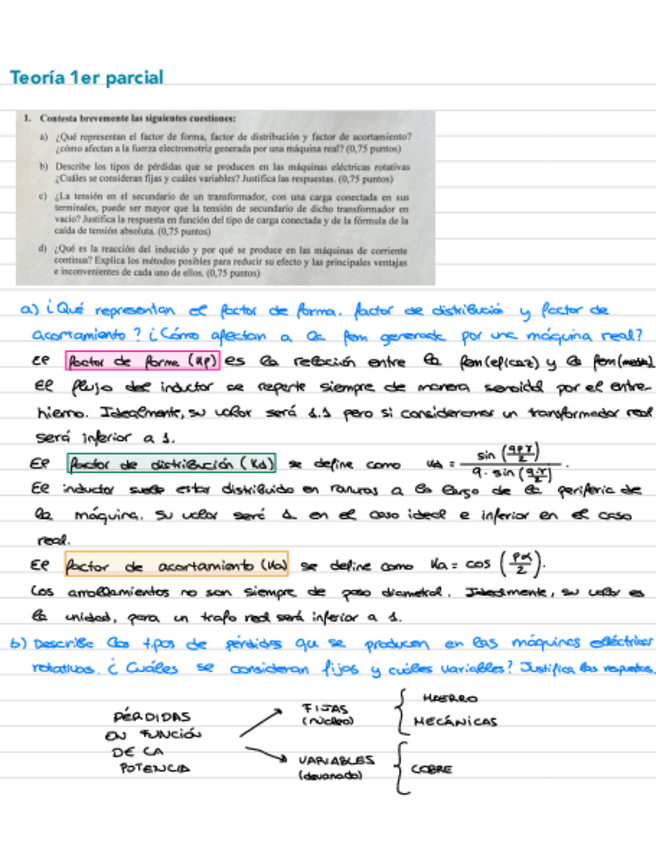 Teoría 1er parcial
1. Contesta brevemente las siguientes cuestiones:
a) ¿Qué representan el factor de forma, factor de distribución y factor de acortamiento?
¿cómo afectan a la fuerza electromotriz generada por una máquina real? (0,75 puntos)
b) Describe los tipos de pérdidas que se producen en las máquinas eléctricas rotativas
¿Cuáles se consideran fijas y cuáles variables? Justifica las respuestas. (0,75 puntos)
c) ¿La tensión en el secundario de un transformador, con una carga conectada en sus
terminales, puede ser mayor que la tensión de secundario de dicho transformador en
vacío? Justifica la respuesta en función del tipo de carga conectada y de la fórmula de la
caída de tensión absoluta. (0,75 puntos)
d) ¿Qué es la reacción del inducido y por qué se produce en las máquinas de corriente
continua? Explica los métodos posibles para reducir su efecto y las principales ventajas
e inconvenientes de cada uno de ellos. (0,75 puntos)
a) ¿Qué representan el factor de forma, factor de distribución y factor de
acortamiento? ¿Cómo afectan a la fem generada por una máquina real?
El factor de forma (Kf) es la relación entre la fem (eficaz) y la fem (media)
El flujo del inductor se reparte siempre de manera senoidal por el entre-
hierro. Idealmente, su valor será 1.1 pero si consideramos un transformador real
será inferior a 1.
El factor de distribución (Kd) se define como Kd =
El inductor suele estar distribuido en ranuras a lo largo de la periferia de
la máquina. Su valor será 1 en el caso ideal e inferior en el caso
real.
El factor de acortamiento (Ka) se define como Ka = cos (pα/2).
Los arrollamientos no son siempre de paso diametral. Idealmente, su valor es
la unidad, para un trafo real será inferior a 1.
b) Describe los tipos de pérdidas que se producen en las máquinas eléctricas
rotativas. ¿Cuáles se consideran fijas y cuáles variables? Justifica las respuestas.
PÉRDIDAS
EN FUNCIÓN
DE LA
POTENCIA
FIJAS
(núcleo)
HIERRO
MECÁNICAS
VARIABLES
(devanado)
COBRE